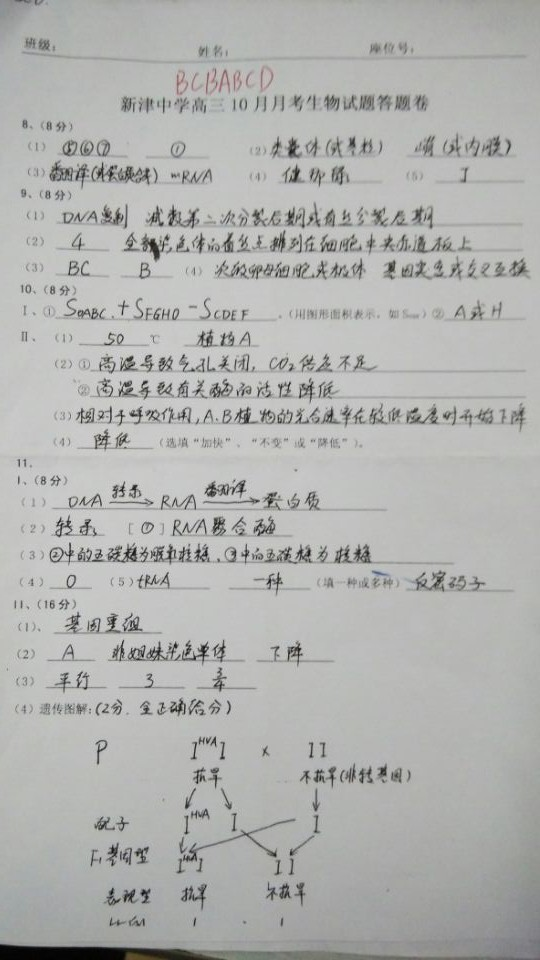 班级： 姓名： 座位号：
BCBABCD
新津中学高三10月月考生物试题答题卷
8、(8分)
(1) ⑤⑥⑦ ① (2) 类囊体(或基粒) 嵴(或内膜)
(3) mRNA (4) 健那绿 (5) I
9、(8分)
(1) DNA复制 减数第二次分裂后期或有丝分裂后期
(2) 4 全部染色体的着丝点排列在细胞中央赤道板上
(3) BC B (4) 次级卵母细胞或极体 基因突变或交叉互换
10、(8分)
I、① SOABC + SFGHO - SCDEF 。(用图形面积表示，如 ② A或H
II、(1) 50 ℃ 植物A
(2) ① 高温导致气孔关闭，CO₂供应不足
② 高温导致有关酶的活性降低
(3) 相对于呼吸作用，A、B植物的光合速率在较低温度时开始下降
(4) 降低 (选填“加快”、“不变”或“降低”)。
11.
I、(8分)
(1) DNA 转录→ RNA 翻译→ 蛋白质
(2) 转录 [①] RNA聚合酶
(3) ②中的五碳糖为脱氧核糖、③中的五碳糖为核糖
(4) 0 (5) tRNA 一种 (填一种或多种) 反密码子
11、(16分)
(1)、基因重组
(2) A 非姐妹染色单体 下降
(3) 平行 3 3/4
(4) 遗传图解：(2分，全正确给分)
P I^HVA I × I I
抗旱 不抗旱(非转基因)
配子 I^HVA I I
F₁基因型 I^HVA I I I
表现型 抗旱 不抗旱
1 : 1